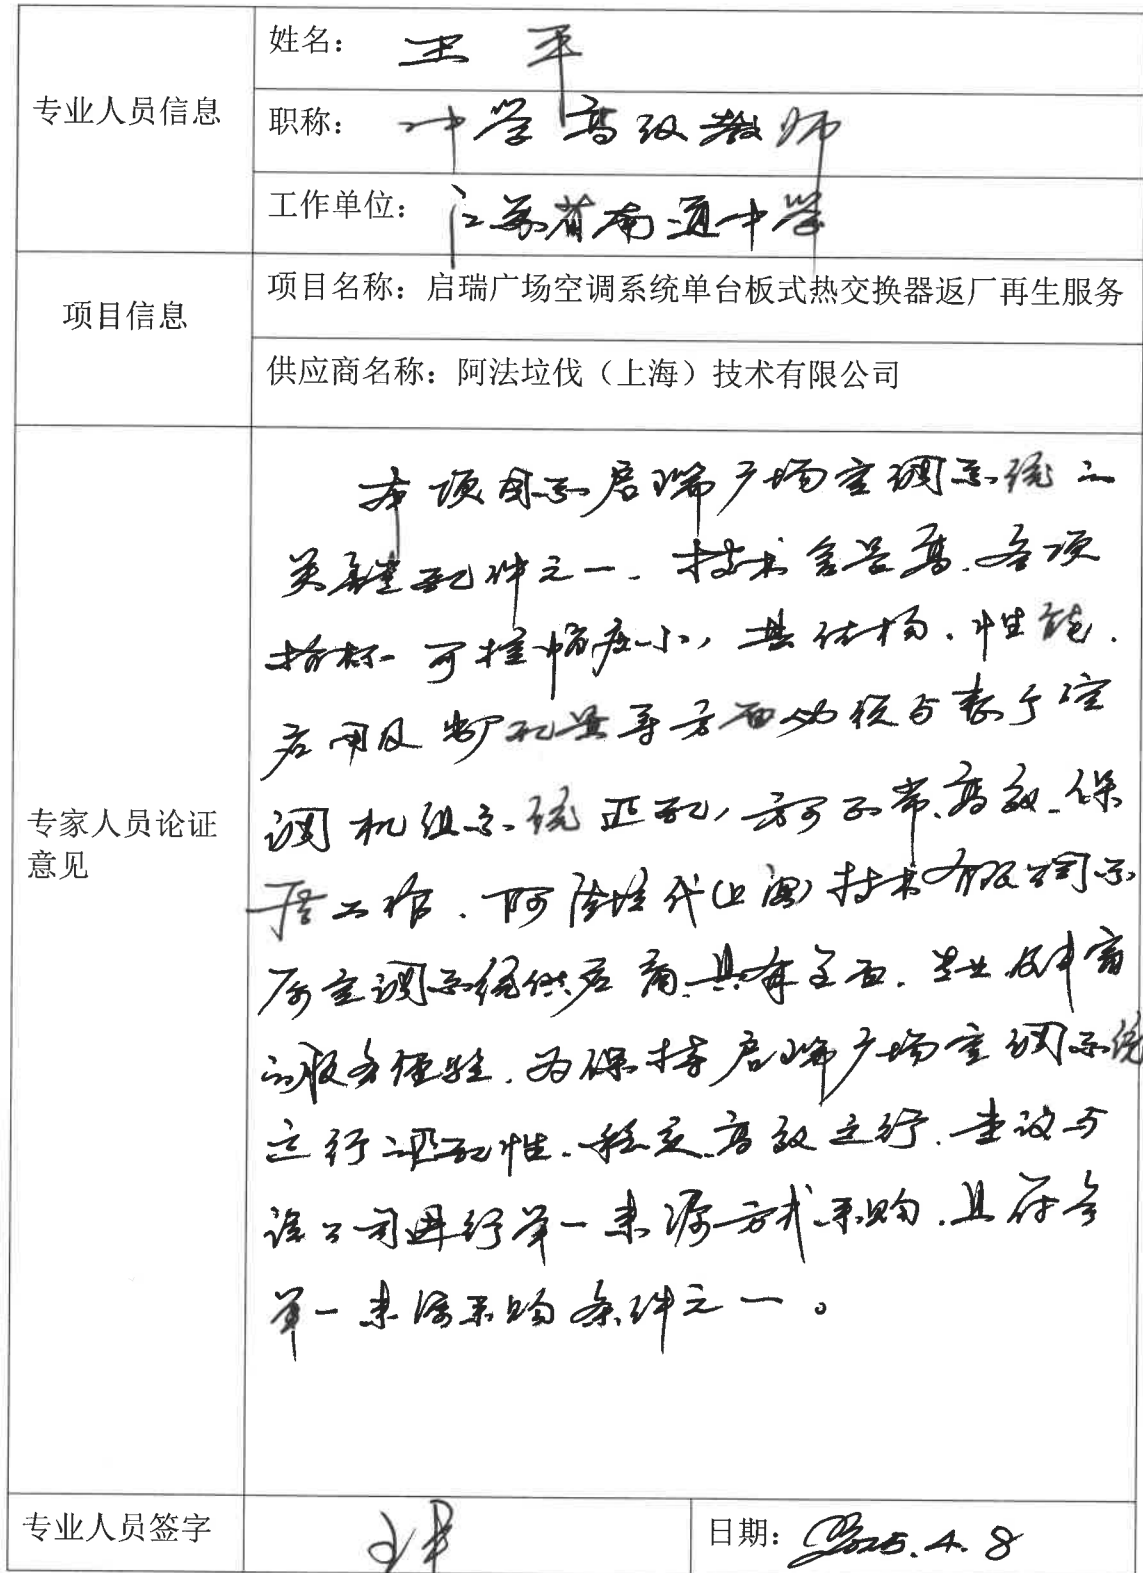 专业人员信息
姓名： 王 平
职称： 中学高级教师
工作单位： 江苏省南通中学
项目信息
项目名称：启瑞广场空调系统单台板式热交换器返厂再生服务
供应商名称：阿法垃伐（上海）技术有限公司
专家人员论证
意见
本项目系启瑞广场空调系统之
关键配件之一、技术含量高、各项
指标可控幅度小，其结构、性能、
应用及 配置等方面必须与 空
调机组系统匹配，方可正常、高效、保
工作、阿法垃伐(上海)技术有限公司系
原空调系统供应商、具有全面、专业及丰富
的服务经验、为保持启瑞广场空调系统
运行匹配性、稳定、高效运行、建议与
该公司进行单一来源方式采购、且符合
单一来源采购条件之一。
专业人员签字
王平
日期： 2025.4.8